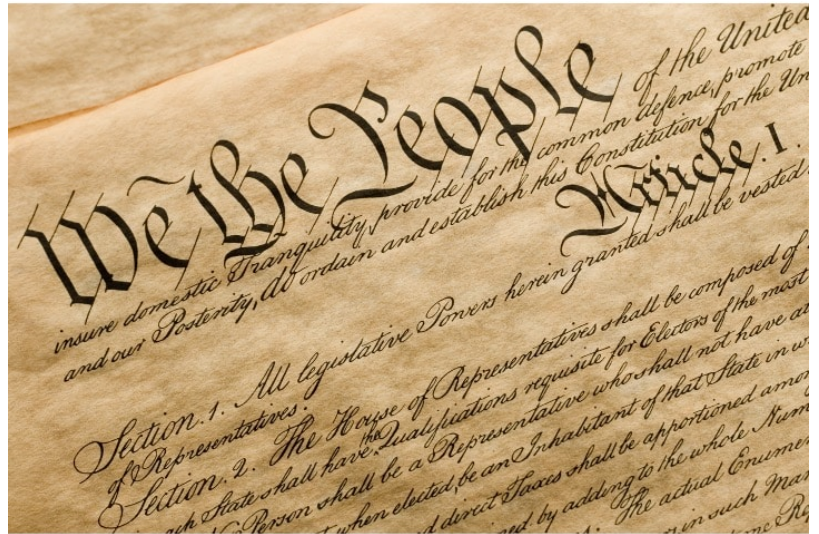 We the People of the United
insure domestic Tranquility, provide for the common defence, promote
and our Posterity, do ordain and establish this Constitution for the Un
Article. I.
Section. 1. All legislative Powers herein granted shall be vested
of Representatives.
Section. 2. The House of Representatives shall be composed of
ach State shall have the Qualifications requisite for Electors of the most
Person shall be a Representative who shall not have at
when elected, be an Inhabitant of that State in w
direct Taxes shall be apportioned amon
by adding to the whole Num
The actual Enume
in such Man